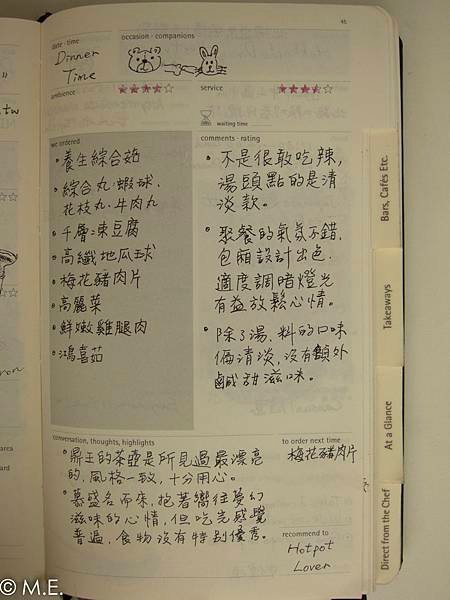 45
date · time
occasion · companions
Dinner
Time
ambience
service
waiting time
we ordered
comments · rating
• 養生綜合菇
• 綜合丸·蝦球·
花枝丸·牛肉丸
• 千層凍豆腐
• 高纖地瓜球
• 梅花豬肉片
• 高麗菜
• 鮮嫩雞腿肉
• 鴻喜菇
• 不是很敢吃辣,
湯頭點的是清
淡款。
• 聚餐的氣氛不錯,
包廂設計出色,
適度調暗燈光
有益放鬆心情。
• 除了湯、料的口味
偏清淡,沒有額外
鹹甜滋味。
conversation, thoughts, highlights
• 鼎王的茶壺是所見過最漂亮
的,風格一致,十分用心。
• 慕盛名而來,抱著嚮往夢幻
滋味的心情,但吃完感覺
普通,食物沒有特別優秀。
to order next time
梅花豬肉片
recommend to
Hotpot
Lover
Bars, Cafés Etc.
Takeaways
At a Glance
Direct from the Chef
© M.E.